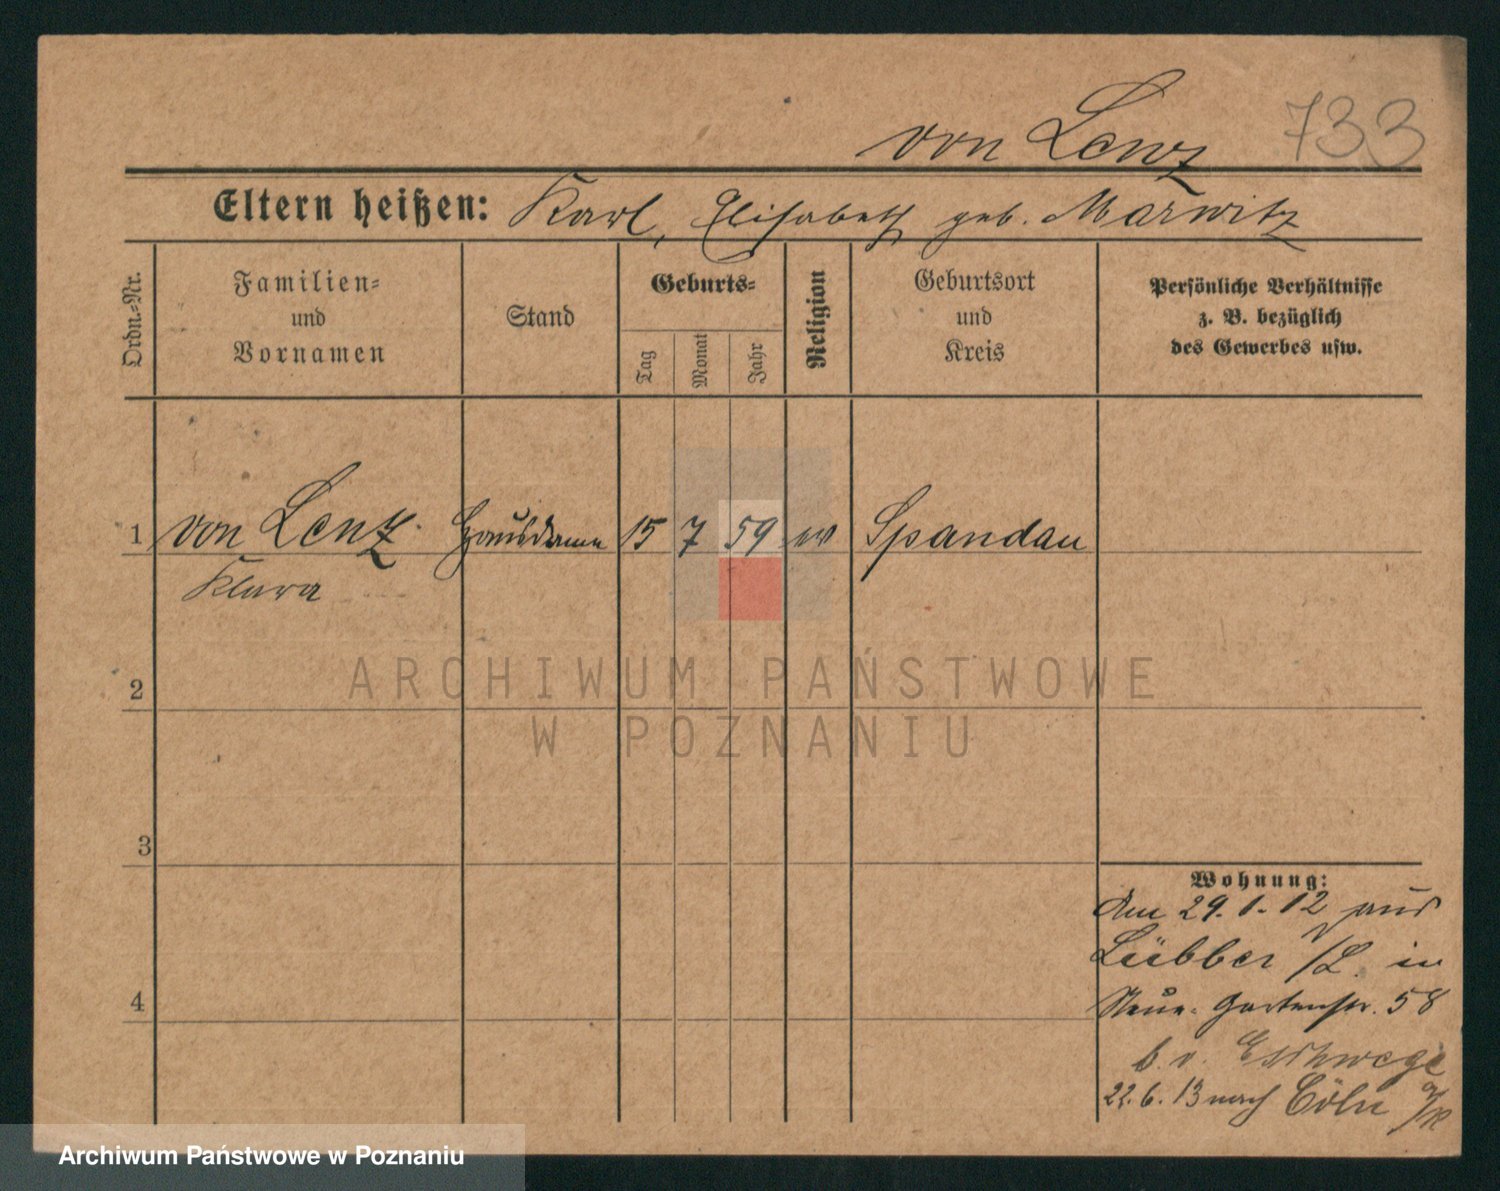 von Lenz 733
Eltern heißen: Karl, Elisabeth geb. Marwitz
Ordn.-Nr.
Familien-
und
Vornamen
Stand
Geburts-
Tag
Monat
Jahr
Religion
Geburtsort
und
Kreis
Persönliche Verhältnisse
z. B. bezüglich
des Gewerbes usw.
1 von Lenz Hausdame 15 7 59 ev Spandau
Klara
2
ARCHIWUM PAŃSTWOWE
W POZNANIU
3
Wohnung:
Am 29.1.12 aus
Lübben /L. in
4
Neue-Gartenstr. 58
b. v. Eschwege
22.6.13 nach Cöln a/R
Archiwum Państwowe w Poznaniu